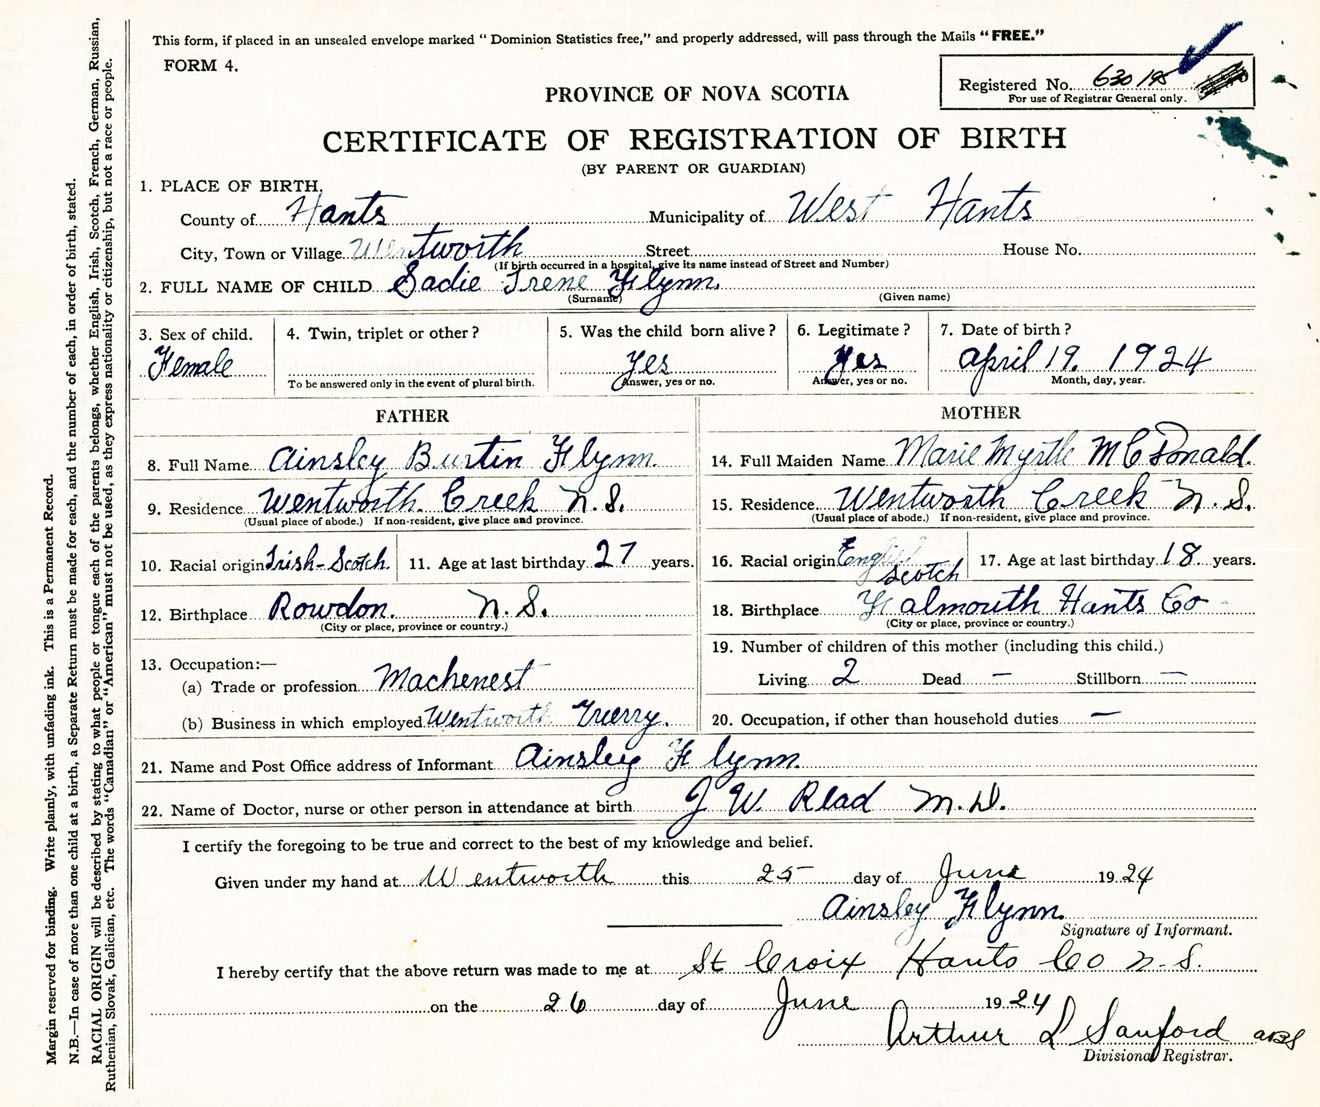 This form, if placed in an unsealed envelope marked " Dominion Statistics free," and properly addressed, will pass through the Mails "FREE."
FORM 4.
Registered No. 630195
For use of Registrar General only.
PROVINCE OF NOVA SCOTIA
CERTIFICATE OF REGISTRATION OF BIRTH
(BY PARENT OR GUARDIAN)
1. PLACE OF BIRTH.
County of Hants Municipality of West Hants
City, Town or Village Wentworth Street House No.
(If birth occurred in a hospital, give its name instead of Street and Number)
2. FULL NAME OF CHILD Sadie Irene Flynn.
(Surname) (Given name)
3. Sex of child. 4. Twin, triplet or other? 5. Was the child born alive? 6. Legitimate? 7. Date of birth?
Female Yes Yes April 19. 1924
To be answered only in the event of plural birth. Answer, yes or no. Answer, yes or no. Month, day, year.
FATHER MOTHER
8. Full Name Ainsley Burtin Flynn. 14. Full Maiden Name Marie Myrtle McDonald.
9. Residence Wentworth Creek N.S. 15. Residence Wentworth Creek N. S.
(Usual place of abode.) If non-resident, give place and province. (Usual place of abode.) If non-resident, give place and province.
10. Racial origin Irish-Scotch. 11. Age at last birthday 27 years. 16. Racial origin English Scotch 17. Age at last birthday 18 years.
12. Birthplace Rowdon. N.S. 18. Birthplace Falmouth Hants Co
(City or place, province or country.) (City or place, province or country.)
13. Occupation:— 19. Number of children of this mother (including this child.)
(a) Trade or profession Machenest Living 2 Dead — Stillborn —
(b) Business in which employed Wentworth 20. Occupation, if other than household duties —
21. Name and Post Office address of Informant Ainsley Flynn.
22. Name of Doctor, nurse or other person in attendance at birth J W. Read M.D.
I certify the foregoing to be true and correct to the best of my knowledge and belief.
Given under my hand at Wentworth this 25 day of June 1924
Ainsley Flynn.
Signature of Informant.
I hereby certify that the above return was made to me at St Croix Hants Co N.S.
on the 26 day of June 1924
Arthur L Sanford
Divisional Registrar.
Margin reserved for binding. Write plainly, with unfading ink. This is a Permanent Record.
N.B.—In case of more than one child at a birth, a Separate Return must be made for each, and the number of each, in order of birth, stated.
RACIAL ORIGIN will be described by stating to what people or tongue each of the parents belongs, whether English, Irish, Scotch, French, German, Russian,
Ruthenian, Slovak, Galician, etc. The words "Canadian" or "American" must not be used, as they express nationality or citizenship, but not a race or people.